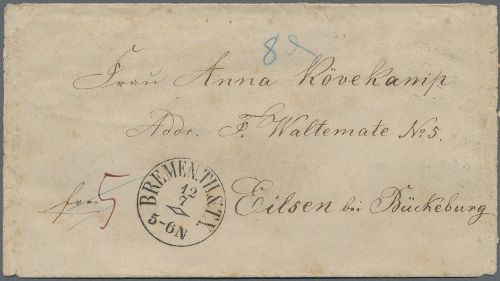 8
Frau Anna Kövekamp
Addr. F. Waltemate No 5.
BREMEN.TH.&TX
12
7
5-6N
frei 5
Eilsen bei Bückeburg